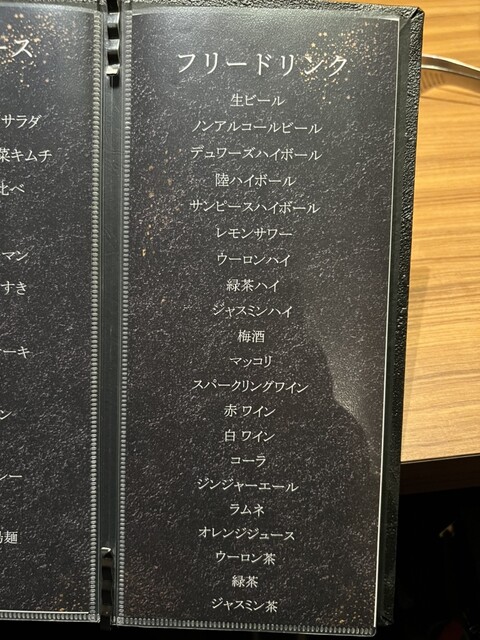 ース
サラダ
菜キムチ
比べ
マン
すき
ーキ
ン
レー
麺
フリードリンク
生ビール
ノンアルコールビール
デュワーズハイボール
陸ハイボール
サンピースハイボール
レモンサワー
ウーロンハイ
緑茶ハイ
ジャスミンハイ
梅酒
マッコリ
スパークリングワイン
赤 ワイン
白 ワイン
コーラ
ジンジャーエール
ラムネ
オレンジジュース
ウーロン茶
緑茶
ジャスミン茶